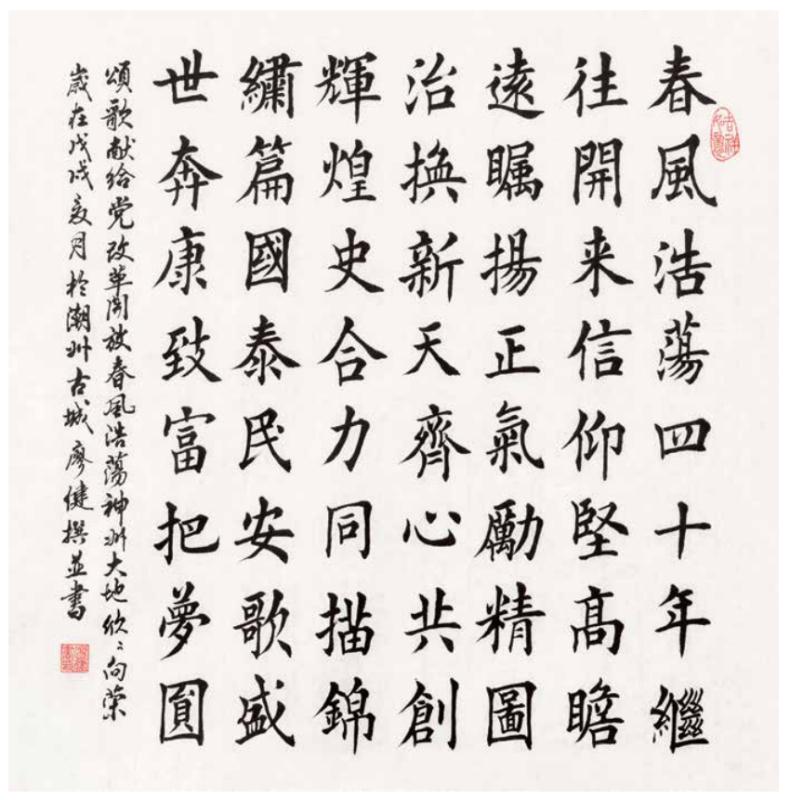 春風浩蕩四十年繼
往開来信仰堅高瞻
遠矚揚正氣勵精圖
治換新天齊心共創
輝煌史合力同描錦
繡篇國泰民安歌盛
世奔康致富把夢圓
頌歌献给党改革開放春風浩蕩神州大地欣〻向荣
歲在戊戌夏月於潮州古城廖健撰並書